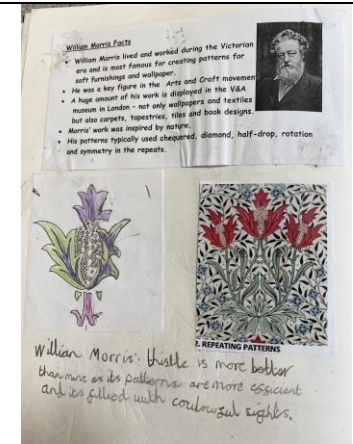 William Morris Facts
• William Morris lived and worked during the Victorian
era and is most famous for creating patterns for
soft furnishings and wallpaper.
• He was a key figure in the Arts and Craft movemen
• A huge amount of his work is displayed in the V&A
museum in London – not only wallpapers and textiles
but also carpets, tapestries, tiles and book designs.
• Morris' work was inspired by nature.
• His patterns typically used chequered, diamond, half-drop, rotation
and symmetry in the repeats.
2. REPEATING PATTERNS
Willian Morris' thistle is more better
than mine as its patterns are more efficient
and its filled with coulourful sights.